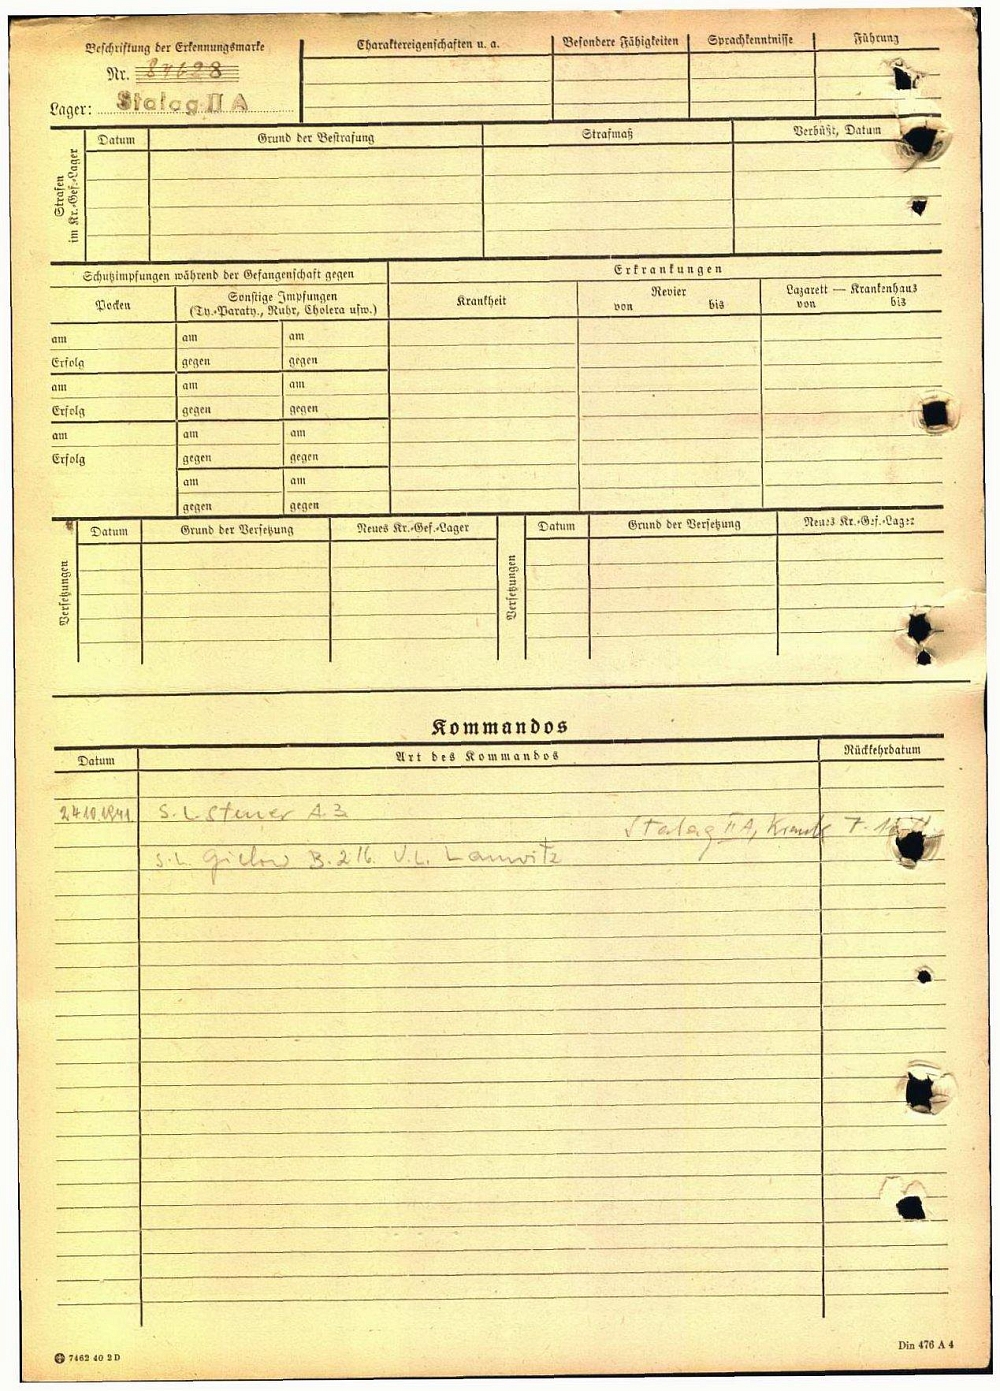 Beschriftung der Erkennungsmarke
Nr. 84628
Lager: Stalag II A
Charaktereigenschaften u. a.
Besondere Fähigkeiten
Sprachkenntnisse
Führung
Strafen im Kr.-Gef.-Lager
Datum
Grund der Bestrafung
Strafmaß
Verbüßt, Datum
Schutzimpfungen während der Gefangenschaft gegen
Pocken
Sonstige Impfungen
(Ty.-Paraty., Ruhr, Cholera usw.)
am am am
Erfolg gegen gegen
am am am
Erfolg gegen gegen
am am am
Erfolg gegen gegen
am am
gegen gegen
Erkrankungen
Krankheit
Revier
von bis
Lazarett — Krankenhaus
von bis
Versetzungen
Datum
Grund der Versetzung
Neues Kr.-Gef.-Lager
Versetzungen
Datum
Grund der Versetzung
Neues Kr.-Gef.-Lager
Kommandos
Datum
Art des Kommandos
Rückkehrdatum
24.10.1941. S. L. Steuer A 3
Stalag II A, Krank 7.
S. L. B. 216. V. L.
7462 40 2D
Din 476 A 4